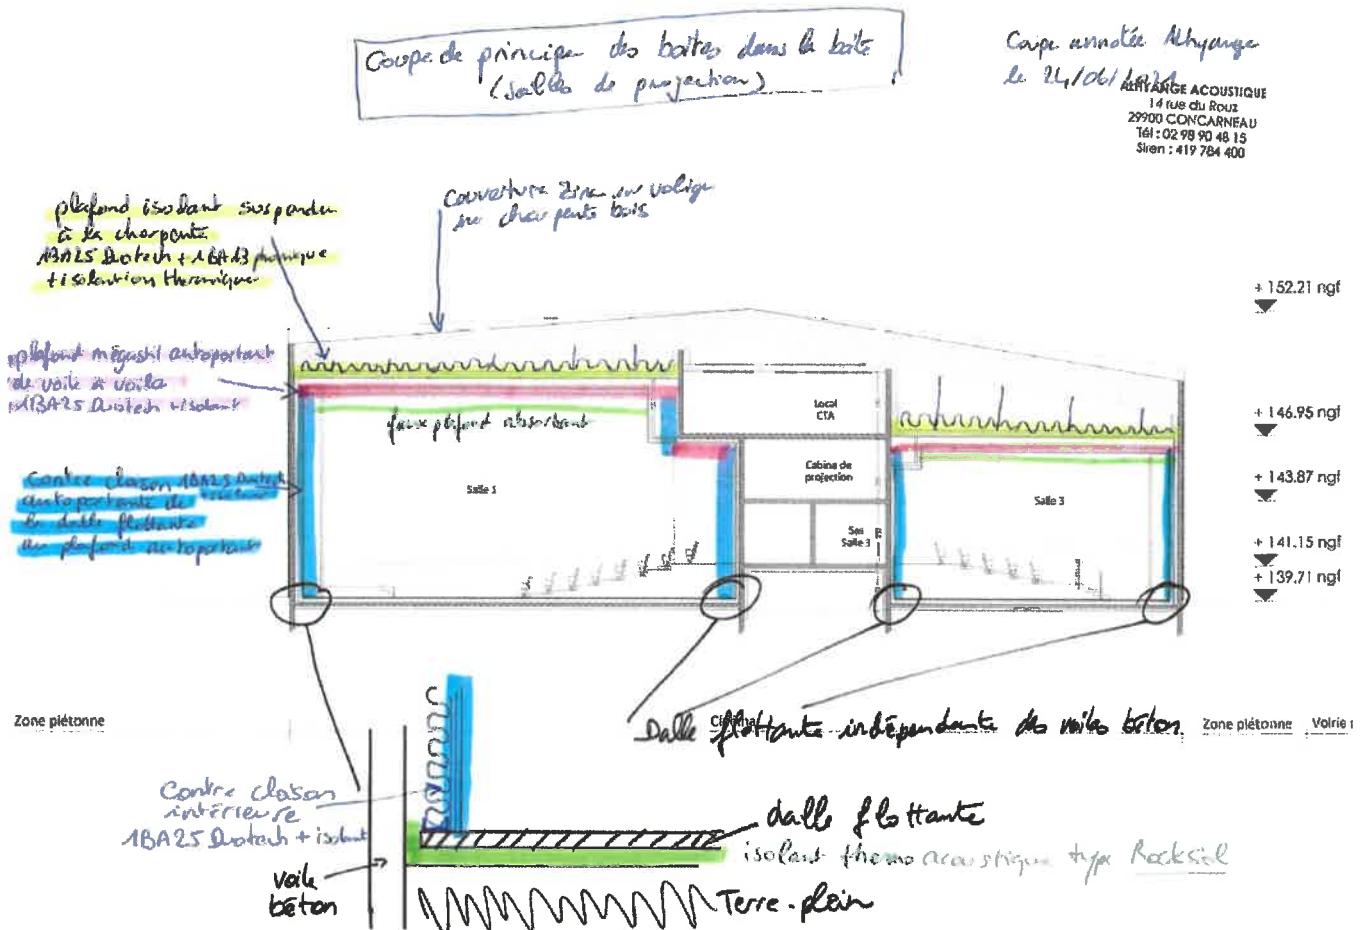 Coupe de principe des boites dans la boite
(salles de projection)
Coupe annotée Alhyange
le 24/06/2021
ALHYANGE ACOUSTIQUE
14 rue du Rouz
29900 CONCARNEAU
Tél : 02 98 90 48 15
Siren : 419 784 400
plafond isolant suspendu
à la charpente
1BA25 Duotech + 1BA13 phonique
+ isolation thermique
Couverture Zinc sur volige
sur charpente bois
plafond mégastil autoportant
de voile à voile
1BA25 Duotech + isolant
faux plafond absorbant
Contre cloison 1BA25 Duotech
autoportante de
la dalle flottante
au plafond autoportant
Salle 1
Local
CTA
Cabine de
projection
Sas
Salle 3
Salle 3
+ 152.21 ngf
+ 146.95 ngf
+ 143.87 ngf
+ 141.15 ngf
+ 139.71 ngf
Zone piétonne
Cinéma
Zone piétonne
Voirie
Dalle flottante indépendante des voiles béton
Contre cloison
intérieure
1BA25 Duotech + isolant
voile
béton
dalle flottante
isolant thermo acoustique type Rocksol
Terre-plein